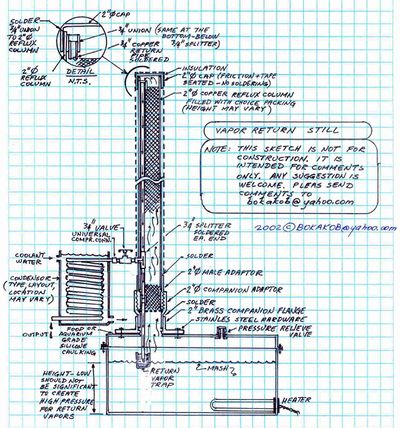 SOLDER
3/4" UNION
TO 2"Ø
REFLUX
COLUMN
2"Ø
REFLUX
COLUMN
2"Ø CAP
3/4" UNION (SAME AT THE
BOTTOM-BELOW
3/4" SPLITTER)
3/4" COPPER
RETURN
PIPE
SOLDERED
DETAIL
N.T.S.
INSULATION
2"Ø CAP (FRICTION+TAPE
SEATED-NO SOLDERING)
2"Ø COPPER REFLUX COLUMN
FILLED WITH CHOICE PACKING
(HEIGHT MAY VARY)
VAPOR RETURN STILL
NOTE: THIS SKETCH IS NOT FOR
CONSTRUCTION. IT IS
INTENDED FOR COMMENTS
ONLY. ANY SUGGESTION IS
WELCOME. PLEAS SEND
COMMENTS TO
bokakob@yahoo.com
2002 © BOKAKOB@yahoo.com
3/4" VALVE
UNIVERSAL
COMPR. CONN.
3/4" SPLITTER
SOLDERED
EA. END
COOLANT
WATER
CONDENSOR
(TYPE, LAYOUT,
LOCATION
MAY VARY)
SOLDER
2"Ø MALE ADAPTOR
2"Ø COMPANION ADAPTOR
SOLDER
2" BRASS COMPANION FLANGE
STAINLESS STEEL HARDWARE
PRESSURE RELIEVE
VALVE
OUTPUT
FOOD OR
AQUARIUM
GRADE
SILICONE
CAULKING
RETURN
VAPOR
TRAP
MASH
HEIGHT-LOW
SHOULD NOT
BE SIGNIFICANT
TO CREATE
HIGH PRESSURE
FOR RETURN
VAPORS
HEATER